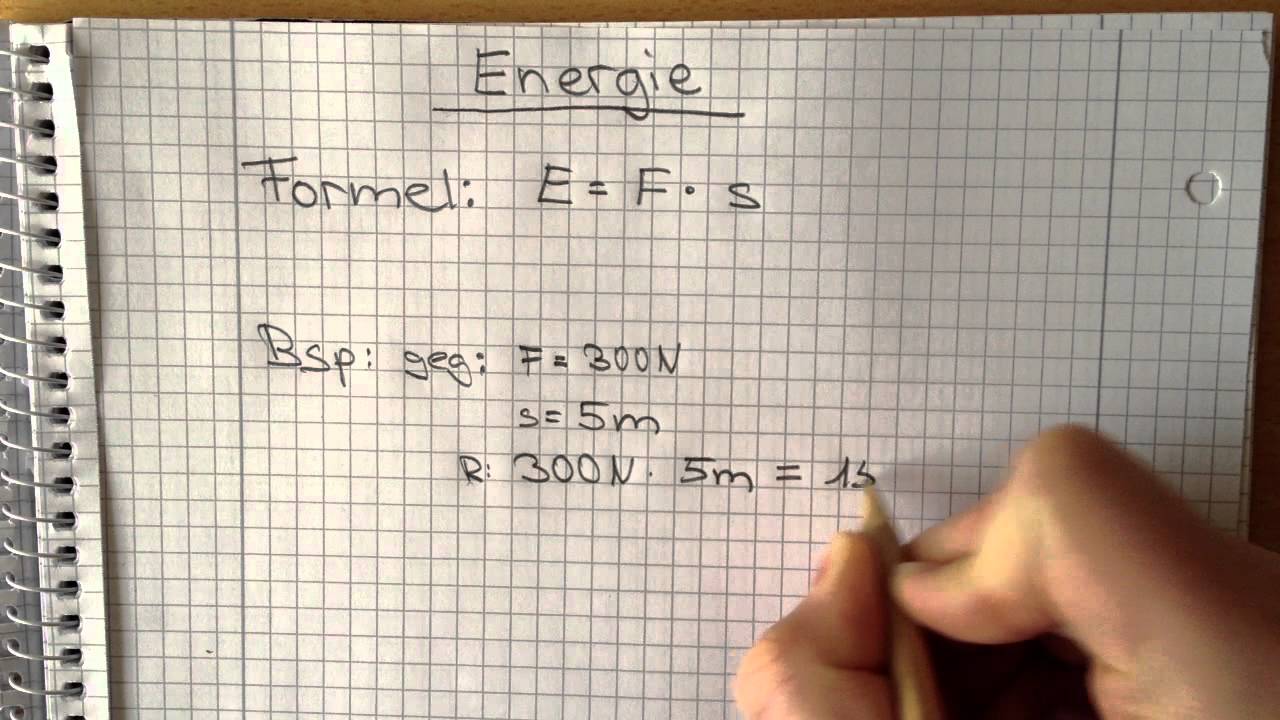 Energie
Formel: E = F · s
Bsp: geg: F = 300N
s = 5m
R: 300N · 5m = 15